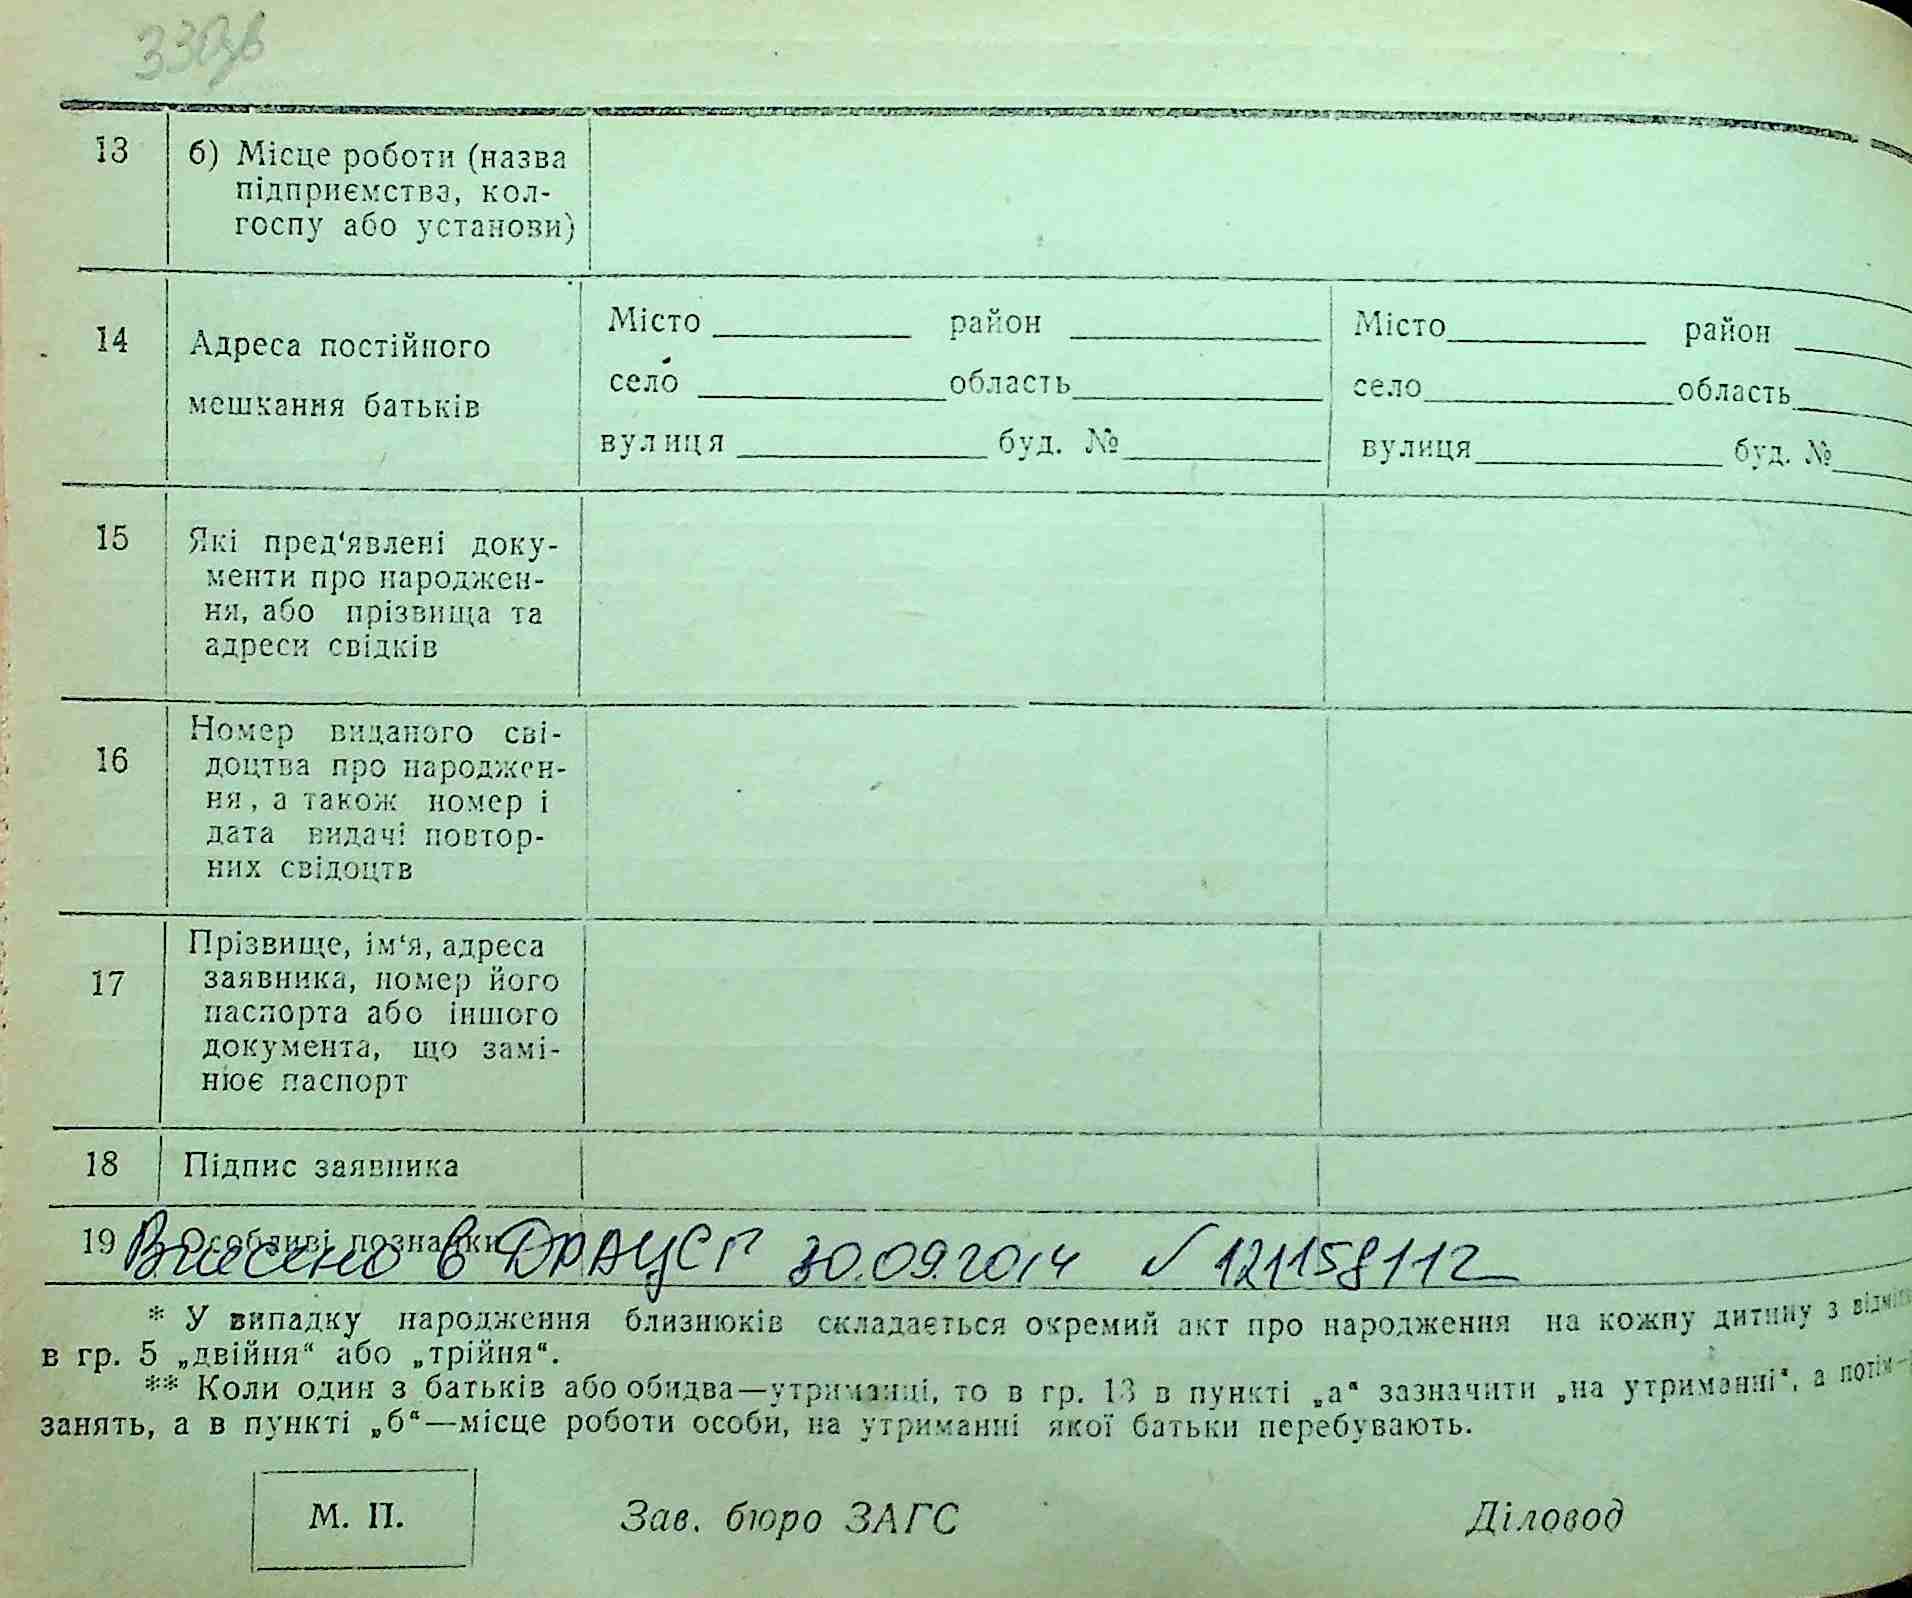 330зв
13 б) Місце роботи (назва
підприємства, кол-
госпу або установи)
14 Адреса постійного
мешкання батьків
Місто район
село область
вулиця буд. №
Місто район
село область
вулиця буд. №
15 Які пред‘явлені доку-
менти про народжен-
ня, або прізвища та
адреси свідків
16 Номер виданого сві-
доцтва про народжен-
ня, а також номер і
дата видачі повтор-
них свідоцтв
17 Прізвище, ім‘я, адреса
заявника, номер його
паспорта або іншого
документа, що замі-
нює паспорт
18 Підпис заявника
19 Особливі познавки
Внесено в ДРАЦСГ 30.09.2014 № 121158112
* У випадку народження близнюків складається окремий акт про народження на кожну дитину з
в гр. 5 „двійня“ або „трійня“.
** Коли один з батьків або обидва—утриманці, то в гр. 13 в пункті „а“ зазначити „на утриманні“, а потім—
занять, а в пункті „б“—місце роботи особи, на утриманні якої батьки перебувають.
М. П. Зав. бюро ЗАГС Діловод